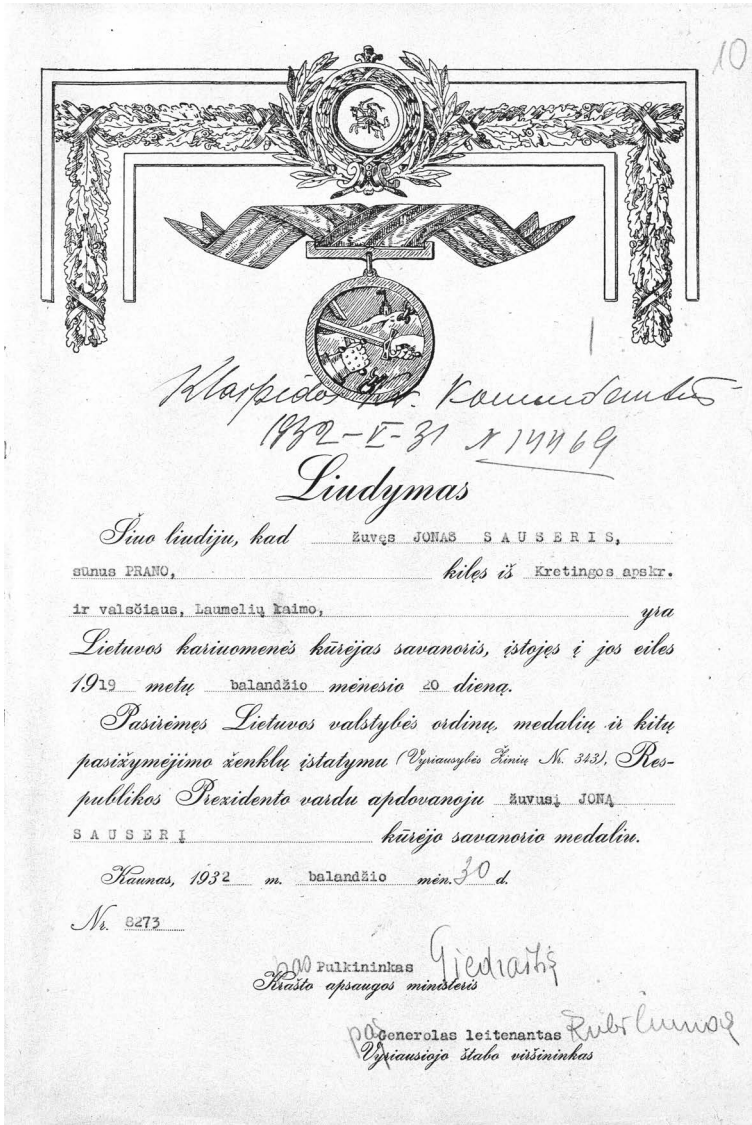 10
Klaipėdos kr. Komendantūs
1932-V-31 N 14469
Liudymas
Šiuo liudiju, kad žuvęs JONAS SAUSERIS,
sūnus PRANO, kilęs iš Kretingos apskr.
ir valsčiaus, Laumelių kaimo, yra
Lietuvos kariuomenės kūrėjas savanoris, įstojęs į jos eiles
1919 metų balandžio mėnesio 20 dieną.
Pasirėmęs Lietuvos valstybės ordinų, medalių ir kitų
pasižymėjimo ženklų įstatymu (Vyriausybės Žinių Nr. 343), Res-
publikos Prezidento vardu apdovanoju žuvusį JONĄ
SAUSERĮ kūrėjo savanorio medaliu.
Kaunas, 1932 m. balandžio mėn. 30 d.
Nr. 8273
pas Pulkininkas Giedraitis
Krašto apsaugos ministeris
pas Generolas leitenantas Kubiliunas
Vyriausiojo štabo viršininkas